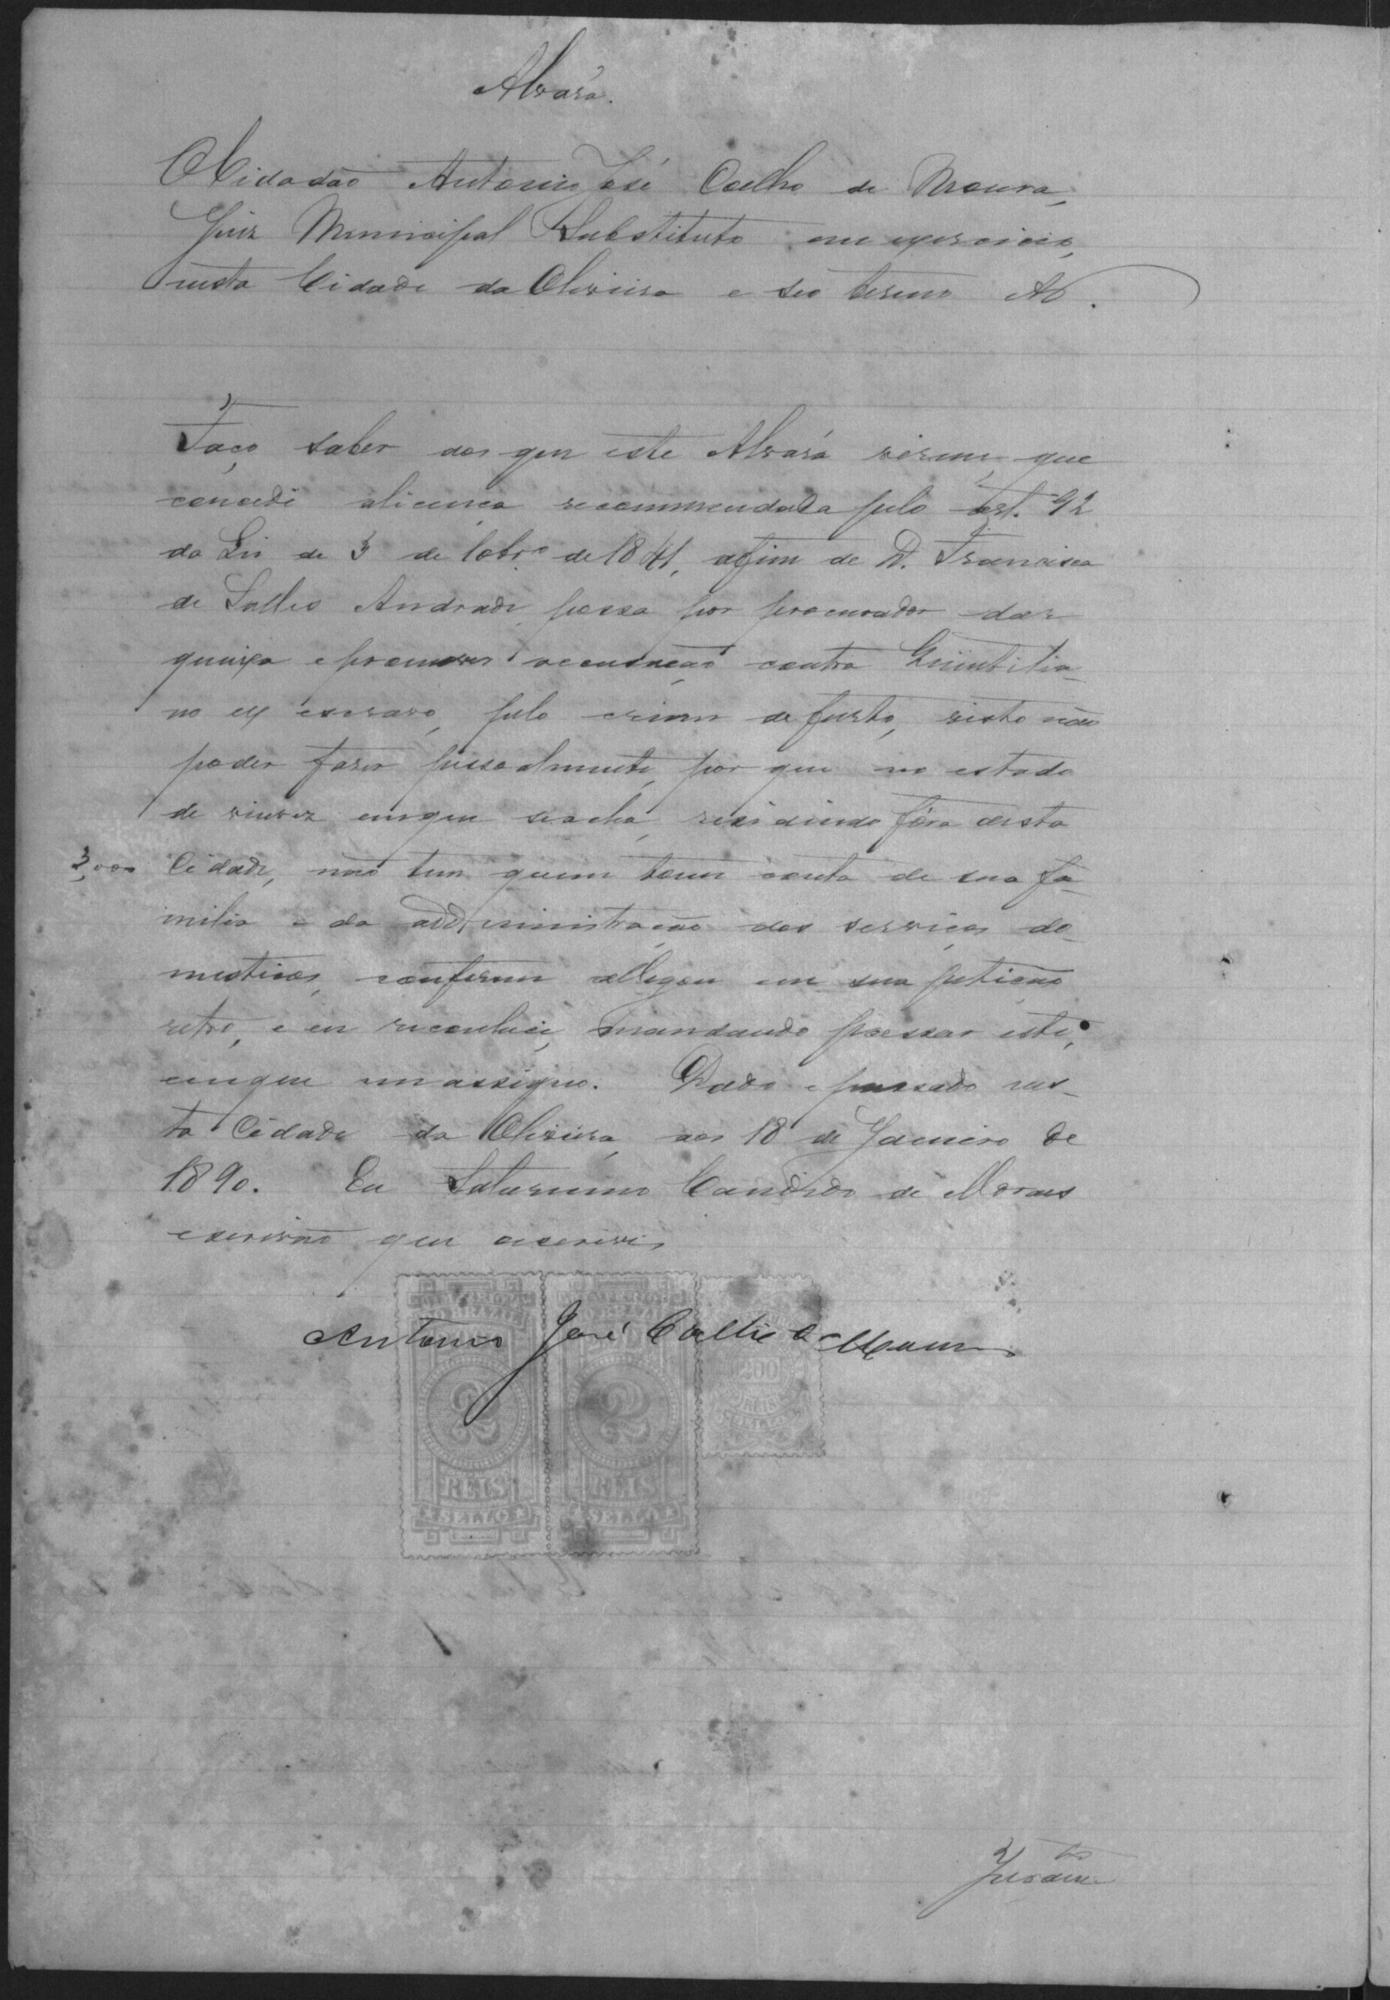 Alvará.
O Cidadão Antonio José Coelho de Moura,
Juiz Municipal Substituto em exercicio,
nesta Cidade da Oliveira e seo termo &.
Faço saber aos que este Alvará virem, que
concedi alicença recommendada pelo art. 92
da Lei de 3 de 10br.o de 1841, afim de D. Francisca
de Salles Andrade, possa por procurador dar
queixa e promover accusação contra Quintilia-
no ex escravo, pelo crime de furto, visto não
poder fazer pessoalmente, por que no estado
de viuvez emque seacha, residindo fóra desta
3,000 Cidade, não tem quem tome conta de sua fa-
milia e da administração dos serviços do-
mesticos, conforme allegou em sua petição
retro, e eu reconheci, mandando passar este,
emque meassigno. Dado e passado nes-
ta Cidade da Oliveira, aos 18 de Janeiro de
1890. Eu Saturnino Candido de Moraes
escrivão que oescrevi,
Antonio José Coelho de Moura
2 2 200
REIS REIS REIS
SELLO SELLO
Juram.to